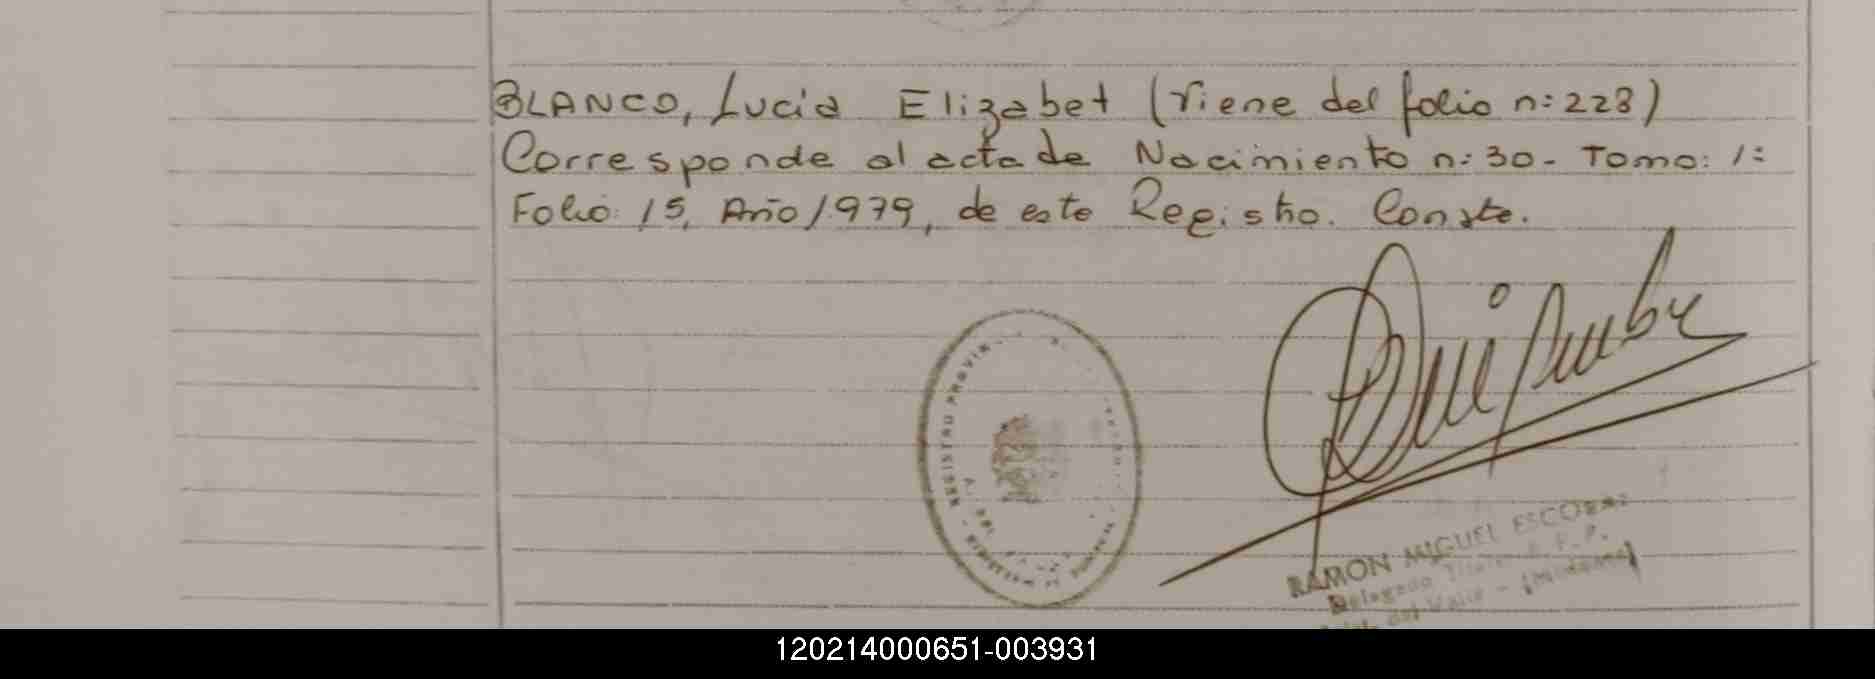 BLANCO, Lucia Elizabet (viene del folio n: 228)
Corresponde al acta de Nacimiento n: 30 - Tomo: 1:
Folio: 15, Año 1.979, de este Registro. Conste.
REGISTRO PROVIN
RAMON MIGUEL ESCOBAR
Delegado
del Valle -
120214000651-003931